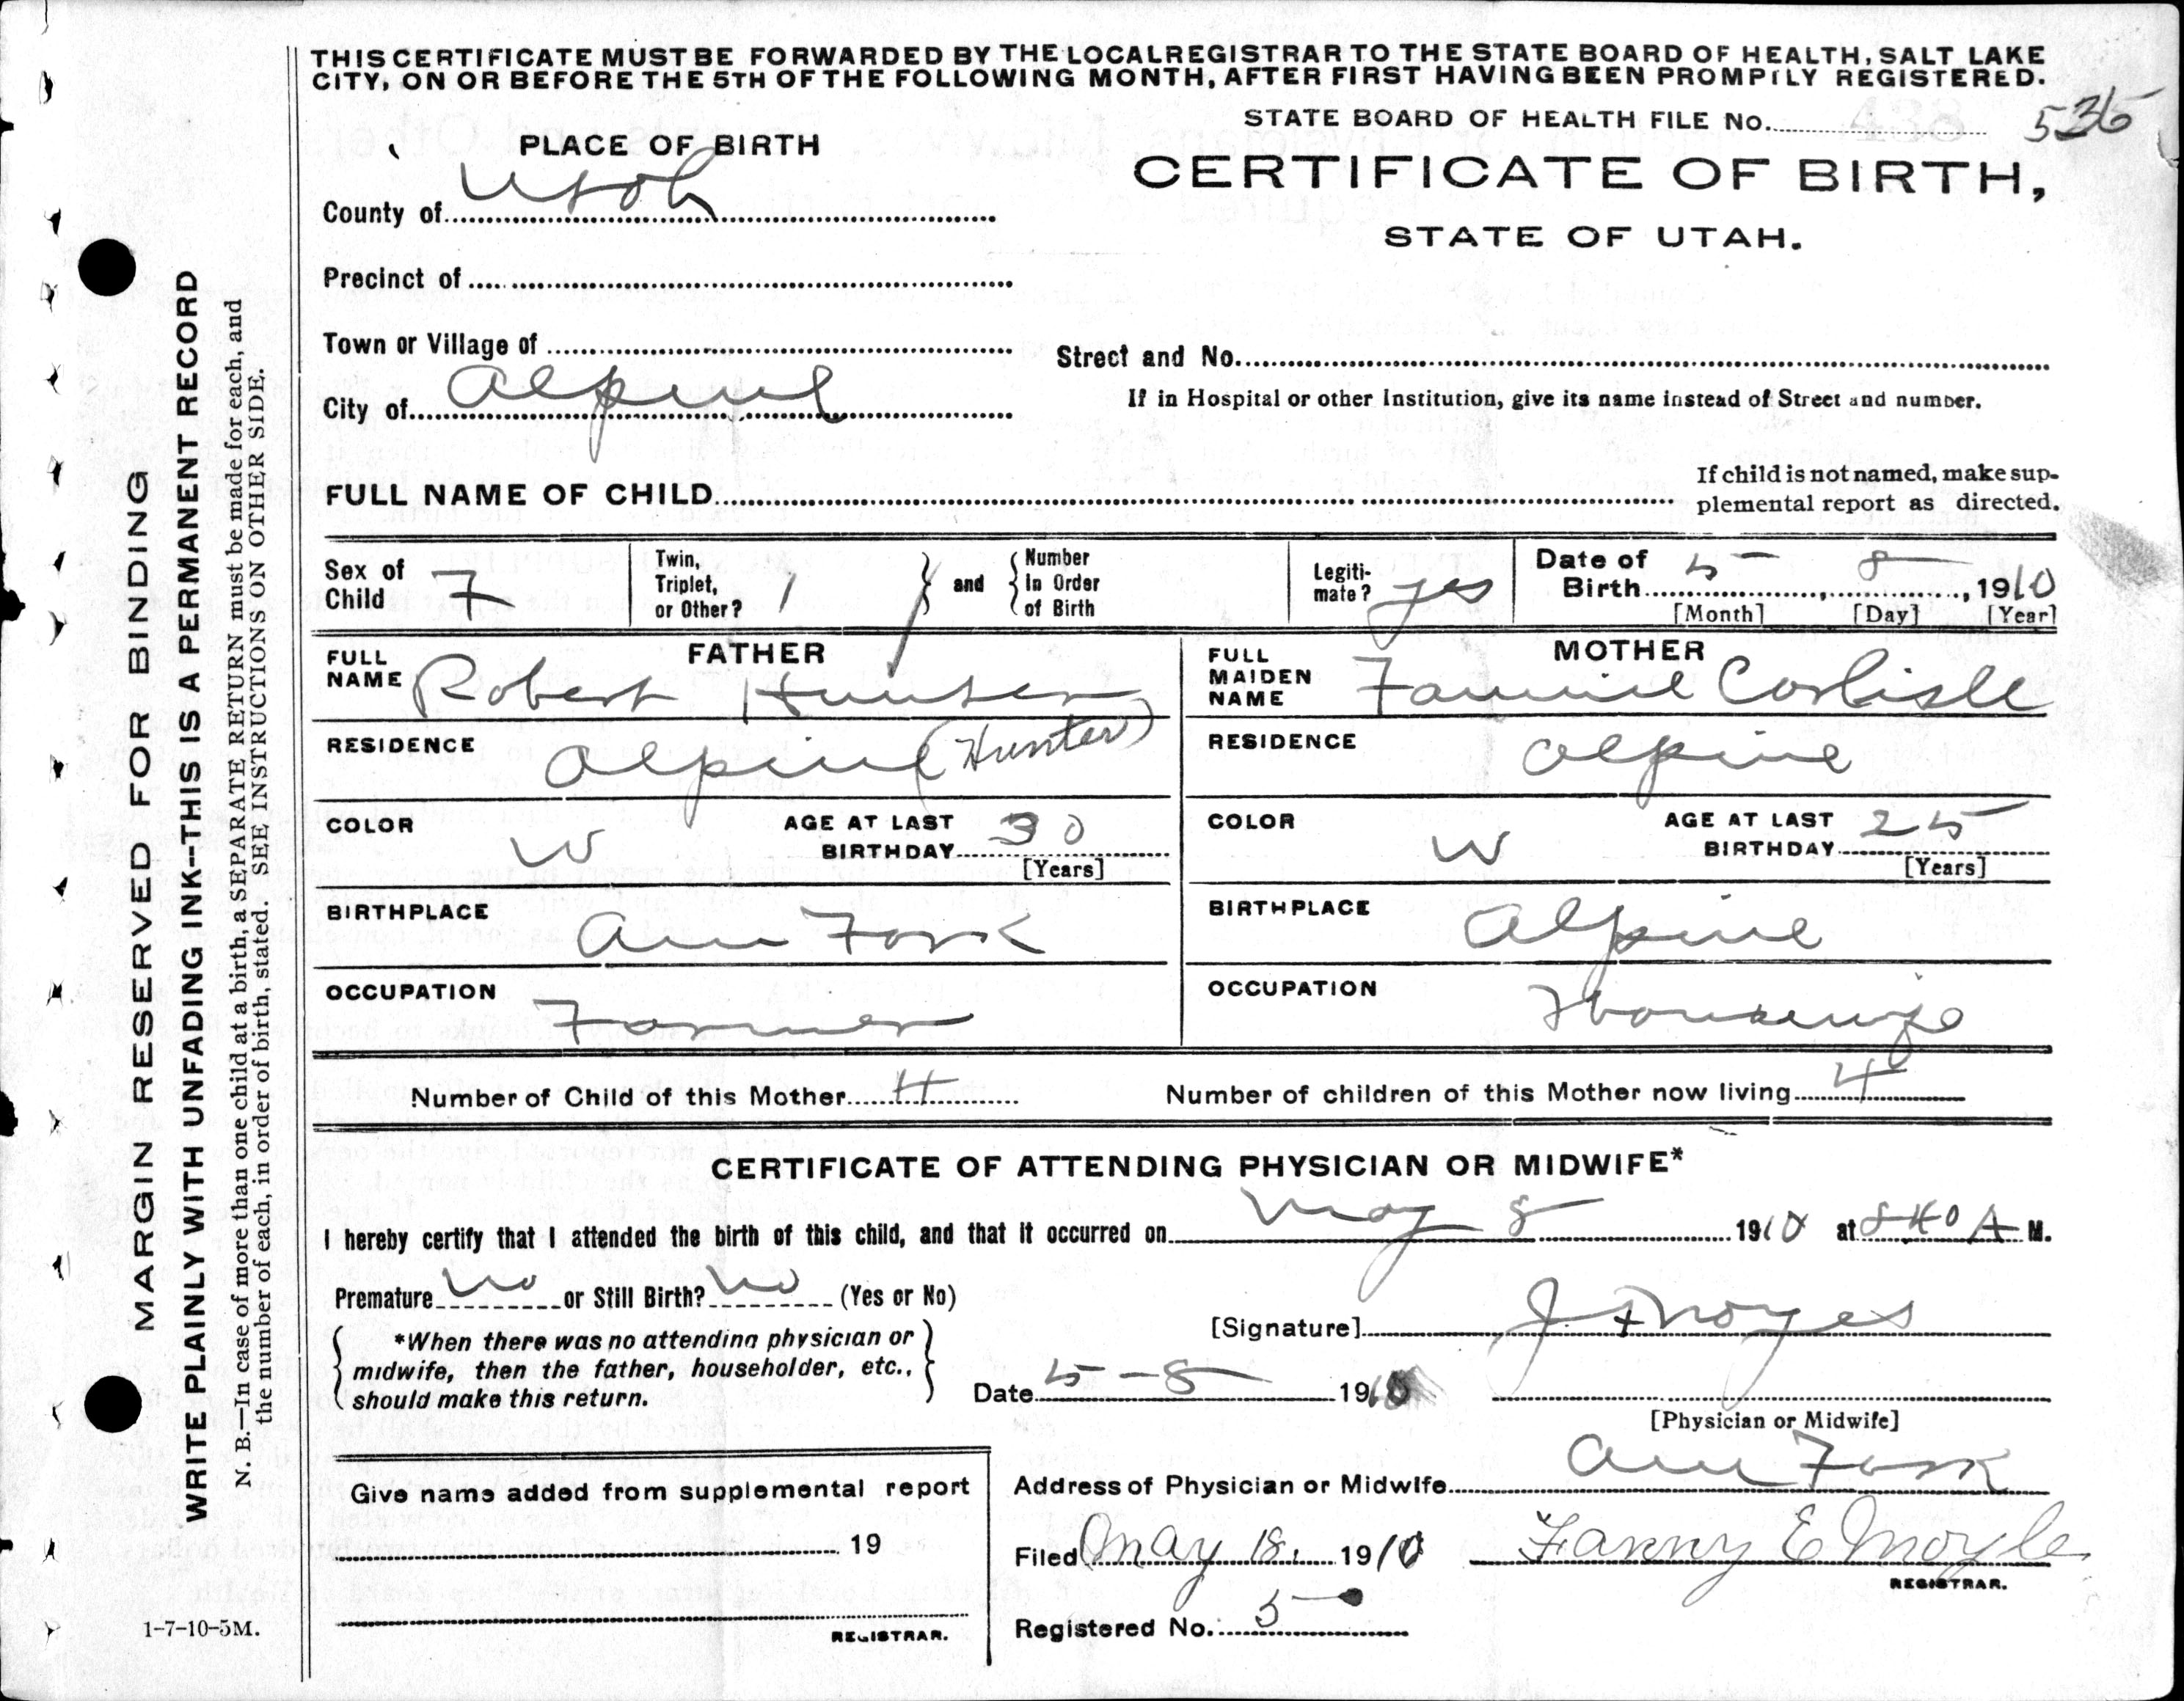 THIS CERTIFICATE MUST BE FORWARDED BY THE LOCAL REGISTRAR TO THE STATE BOARD OF HEALTH, SALT LAKE
CITY, ON OR BEFORE THE 5TH OF THE FOLLOWING MONTH, AFTER FIRST HAVING BEEN PROMPTLY REGISTERED.
STATE BOARD OF HEALTH FILE No. 536
PLACE OF BIRTH
CERTIFICATE OF BIRTH,
STATE OF UTAH.
County of Utah
Precinct of
Town or Village of
Street and No.
City of Alpine
If in Hospital or other Institution, give its name instead of Street and number.
FULL NAME OF CHILD
If child is not named, make sup-
plemental report as directed.
Sex of Child F
Twin, Triplet, or Other? 1
and
Number In Order of Birth
Legiti-mate? yes
Date of Birth 5 - 8 -, 1910
[Month] [Day] [Year]
FATHER
FULL NAME Robert Hunter
RESIDENCE Alpine (Hunter)
COLOR W
AGE AT LAST BIRTHDAY 30
[Years]
BIRTHPLACE Am Fork
OCCUPATION Farmer
MOTHER
FULL MAIDEN NAME Fannie Carlisle
RESIDENCE Alpine
COLOR W
AGE AT LAST BIRTHDAY 25
[Years]
BIRTHPLACE Alpine
OCCUPATION Housewife
Number of Child of this Mother 4
Number of children of this Mother now living 4
CERTIFICATE OF ATTENDING PHYSICIAN OR MIDWIFE*
I hereby certify that I attended the birth of this child, and that it occurred on May 8 1910 at 8 40 A M.
Premature No or Still Birth? No (Yes or No)
*When there was no attending physician or
midwife, then the father, householder, etc.,
should make this return.
[Signature] J F Noyes
Date 5 - 8 1910
[Physician or Midwife]
Address of Physician or Midwife Am Fork
Give name added from supplemental report
19
REGISTRAR.
Filed May 18, 1910 Fanny E Moyle
REGISTRAR.
Registered No. 5
1-7-10-5M.
MARGIN RESERVED FOR BINDING
WRITE PLAINLY WITH UNFADING INK--THIS IS A PERMANENT RECORD
N. B.—In case of more than one child at a birth, a SEPARATE RETURN must be made for each, and
the number of each, in order of birth, stated. SEE INSTRUCTIONS ON OTHER SIDE.